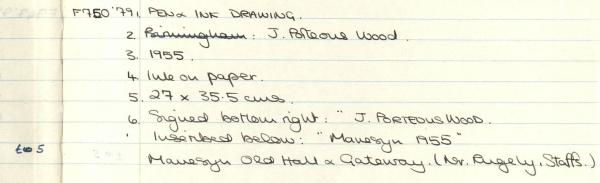 F750'79. 1. PEN & INK DRAWING.
2. Birmingham: J. Porteous Wood.
3. 1955.
4. Ink on paper.
5. 27 x 35.5 cms.
6. Signed bottom right: " J. PORTEOUS WOOD.
' Inscribed below: " Mavesyn 1955"
to 5 Mavesyn Old Hall & Gateway. (Nr. Rugely. Staffs.)